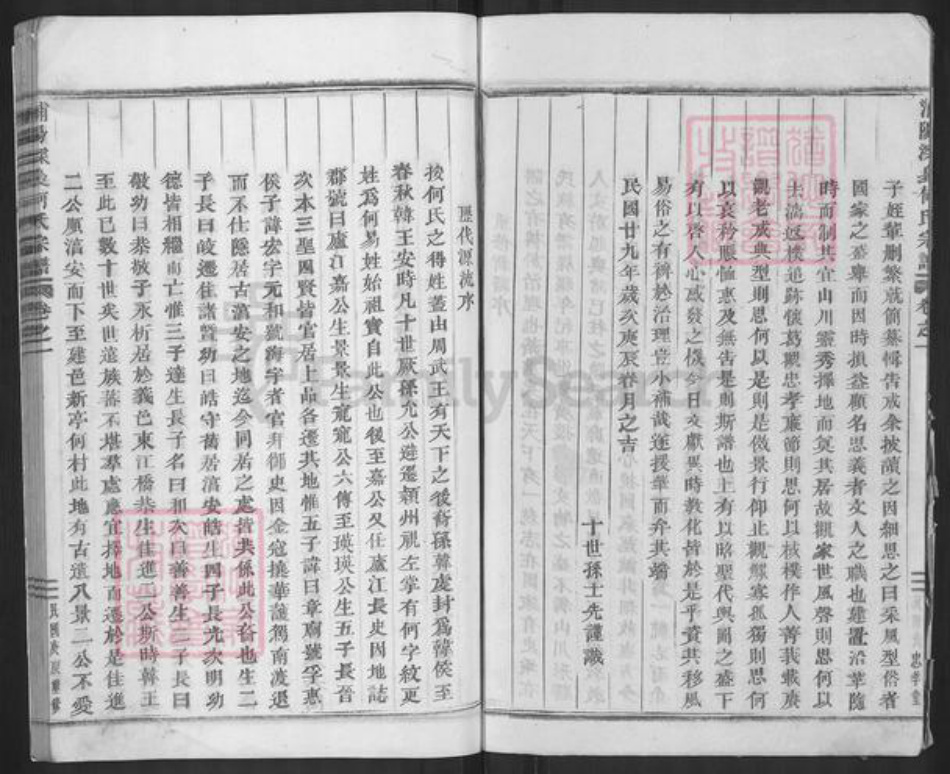 子姪輩刪繁就簡纂輯告成余披讀之因細思之曰采風型俗者
國家之盛舉而因時損益顧名思義者文人之職也建置沿革隨
時而制其宜山川靈秀擇地而奠其居故觀家世風聲則思何以
士滴返樸追蹤懷葛觀忠孝廉節則思何以棫樸作人菁莪載賡
觀老成典型則思何以是則是傚景行仰止觀鰥寡孤獨則思何
以哀矜賑恤惠及無告是則斯譜也上有以昭聖代興國之盛下
有以啓人心感發之機今日文獻異時教化皆於是乎賚其移風
易俗之有裨於治理豈小補哉遂援筆而弁其端
民國廿九年歲次庚辰春月之吉
十世孫士先謹識
歷代源流序
按何氏之得姓蓋由周武王有天下之後裔孫韓虔封爲韓侯至
春秋韓王安時凡十世厥孫允公遊遷潁州視左掌有何字紋更
姓爲何易姓始祖實自此公也後至嘉公又任廬江長史因地誌
郡號曰廬江嘉公生景景生寬寬公六傳至瑛瑛公生五子長晉
次本三聖四賢皆官居上品各遷其地惟五子諱曰章廟號孚惠
侯子諱宏字元和號海字者官拜御史因金寇撓華護駕南渡退
而不仕隱居古滈安之地迄今同居之處皆其係此公裔也生二
子長曰岐遷住諸暨幼曰皓守舊居滈安皓生四子長光次明幼
德皆相繼而亡惟三子達生長子名曰和次曰善善生三子長曰
敬幼曰恭敬子永析居於義邑東江橋恭生佳進二公斯時韓王
至此已數十世矣世遠族蕃不堪羣處應宜擇地而遷於是佳進
二公原滈安而下至建邑新亭何村此地有古遺八景二公不愛
何氏宗譜
卷之一
民國庚辰重修
忠孝堂
FamilySearch